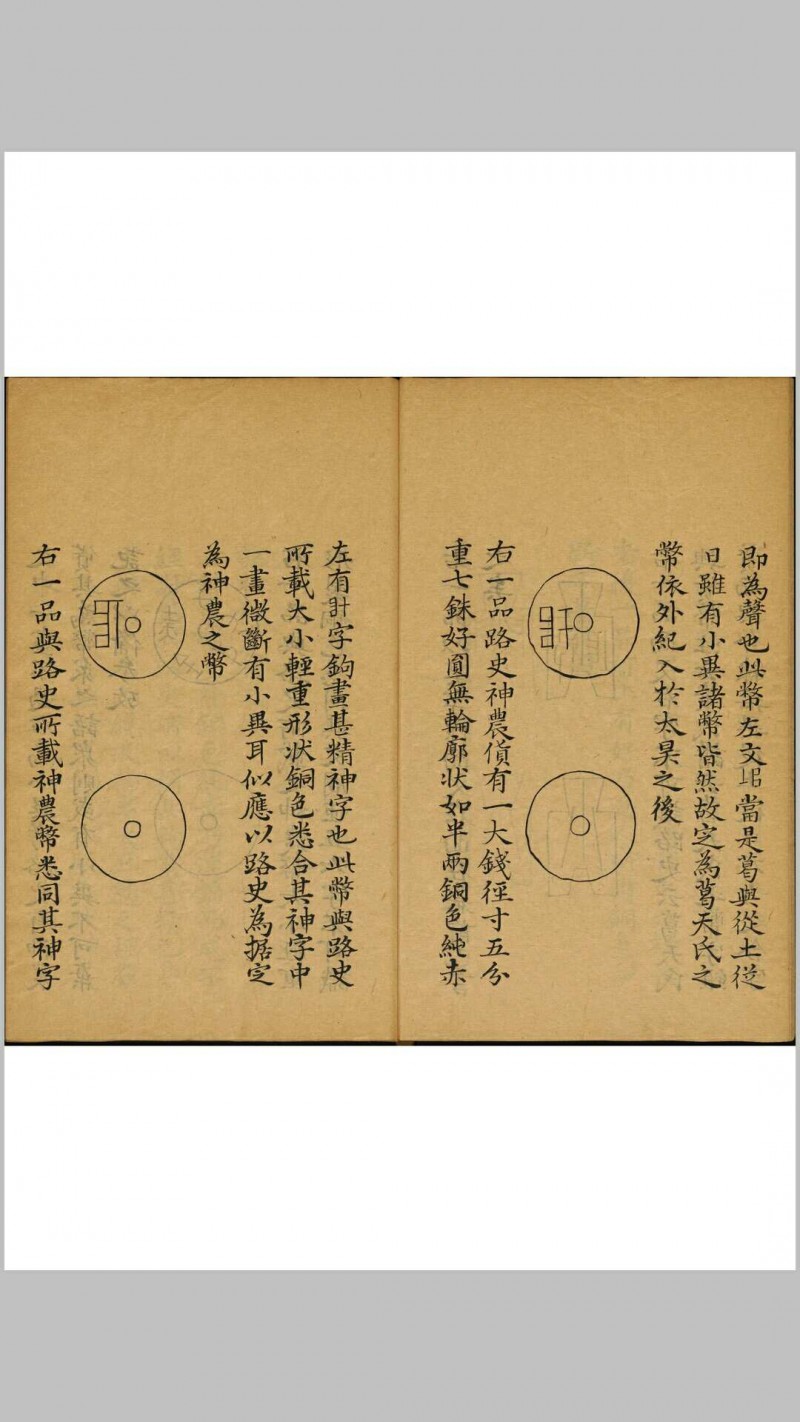 即為聲也此幣左文㫐當是葛與從土從
日雖有小異諸幣皆然故定為葛天氏之
幣依外紀入於太昊之後
右一品路史神農貨有一大錢徑寸五分
重七銖好圓無輪廓状如半兩銅色純赤
左有字鉤畫甚精神字也此幣與路史
所載大小輕重形状銅色悉合其神字中
一畫微斷有小異耳似應以路史為据定
為神農之幣
右一品與路史所載神農幣悉同其神字